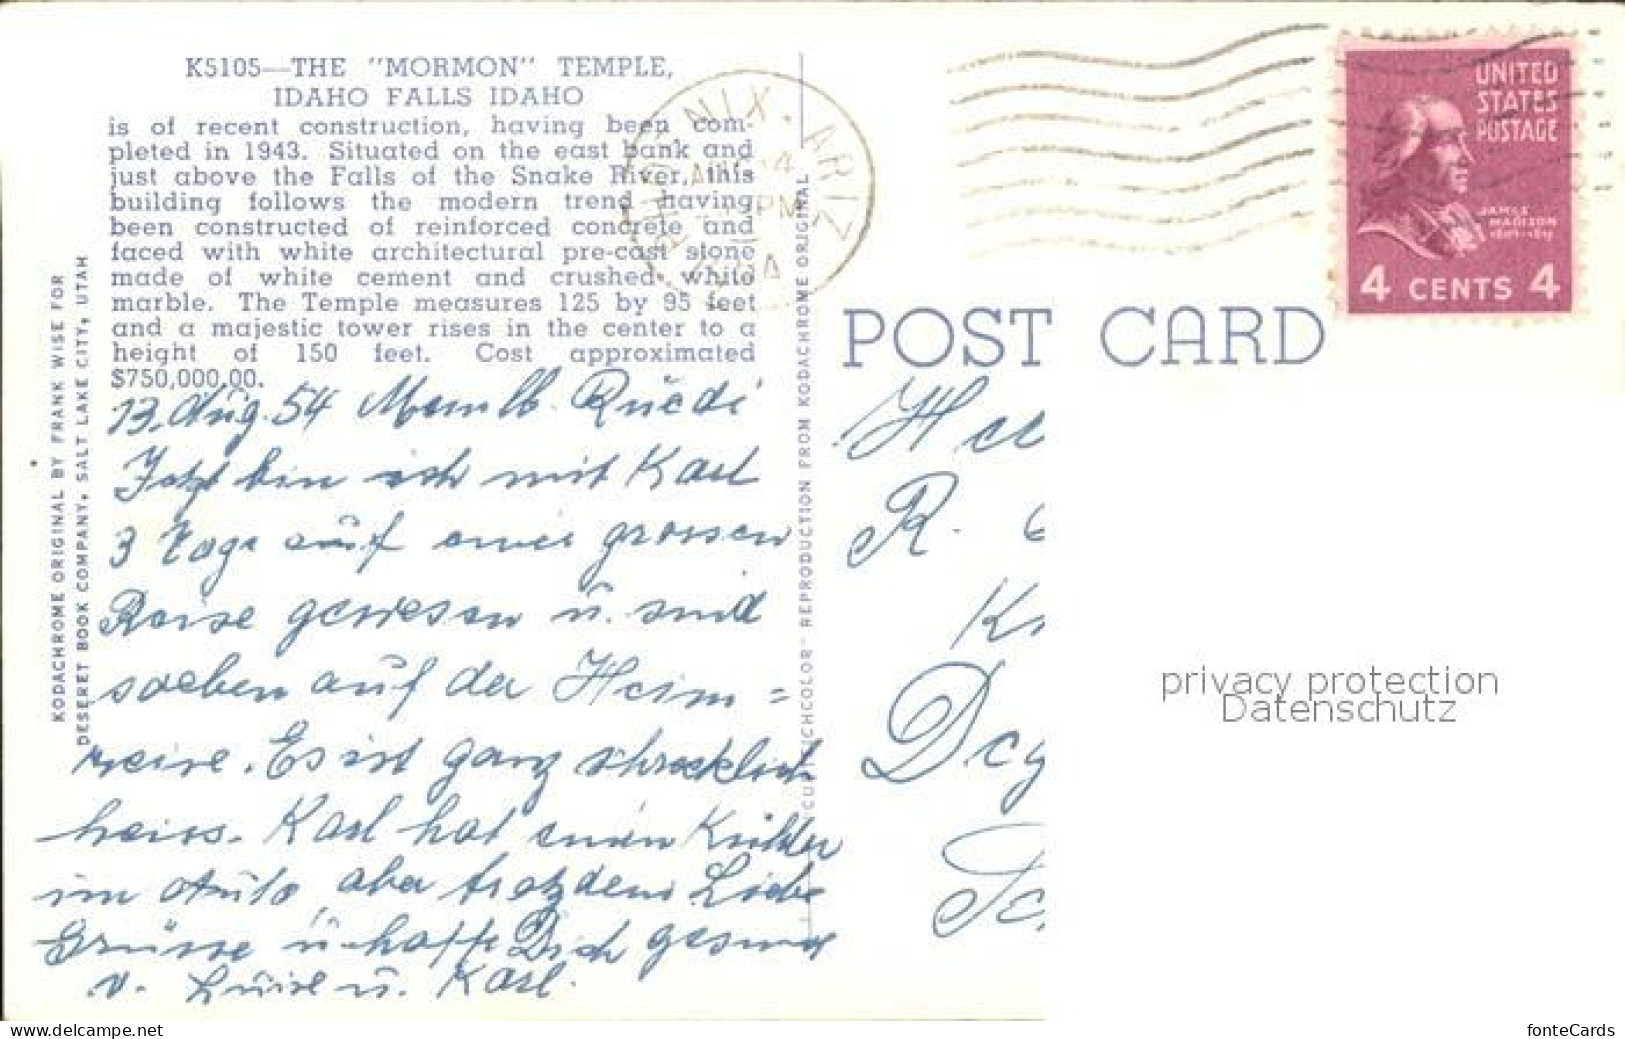 K5105—THE "MORMON" TEMPLE,
IDAHO FALLS IDAHO
is of recent construction, having been com-
pleted in 1943. Situated on the east bank and
just above the Falls of the Snake River, this
building follows the modern trend having
been constructed of reinforced concrete and
faced with white architectural pre-cast stone
made of white cement and crushed white
marble. The Temple measures 125 by 95 feet
and a majestic tower rises in the center to a
height of 150 feet. Cost approximated
$750,000.00.
KODACHROME ORIGINAL BY FRANK WISE FOR
DESERET BOOK COMPANY, SALT LAKE CITY, UTAH
13. Aug. 54 Ruedi
Jetzt bin ich mit Karl
3 Tage auf einer grossen
Reise gewesen u. sind
soeben auf der Heim=
reise. Es ist ganz schrecklich
heiss. Karl hat einen Kühler
im Auto, aber trotzdem Liebe
Grüsse u. hoffe Dich gesund
v. Luise u. Karl.
REPRODUCTION FROM KODACHROME ORIGINAL
NIX, ARIZ
PM
POST CARD
UNITED
STATES
POSTAGE
JAMES
MADISON
4 CENTS 4
R.
privacy protection
Datenschutz
www.delcampe.net
fonteCards